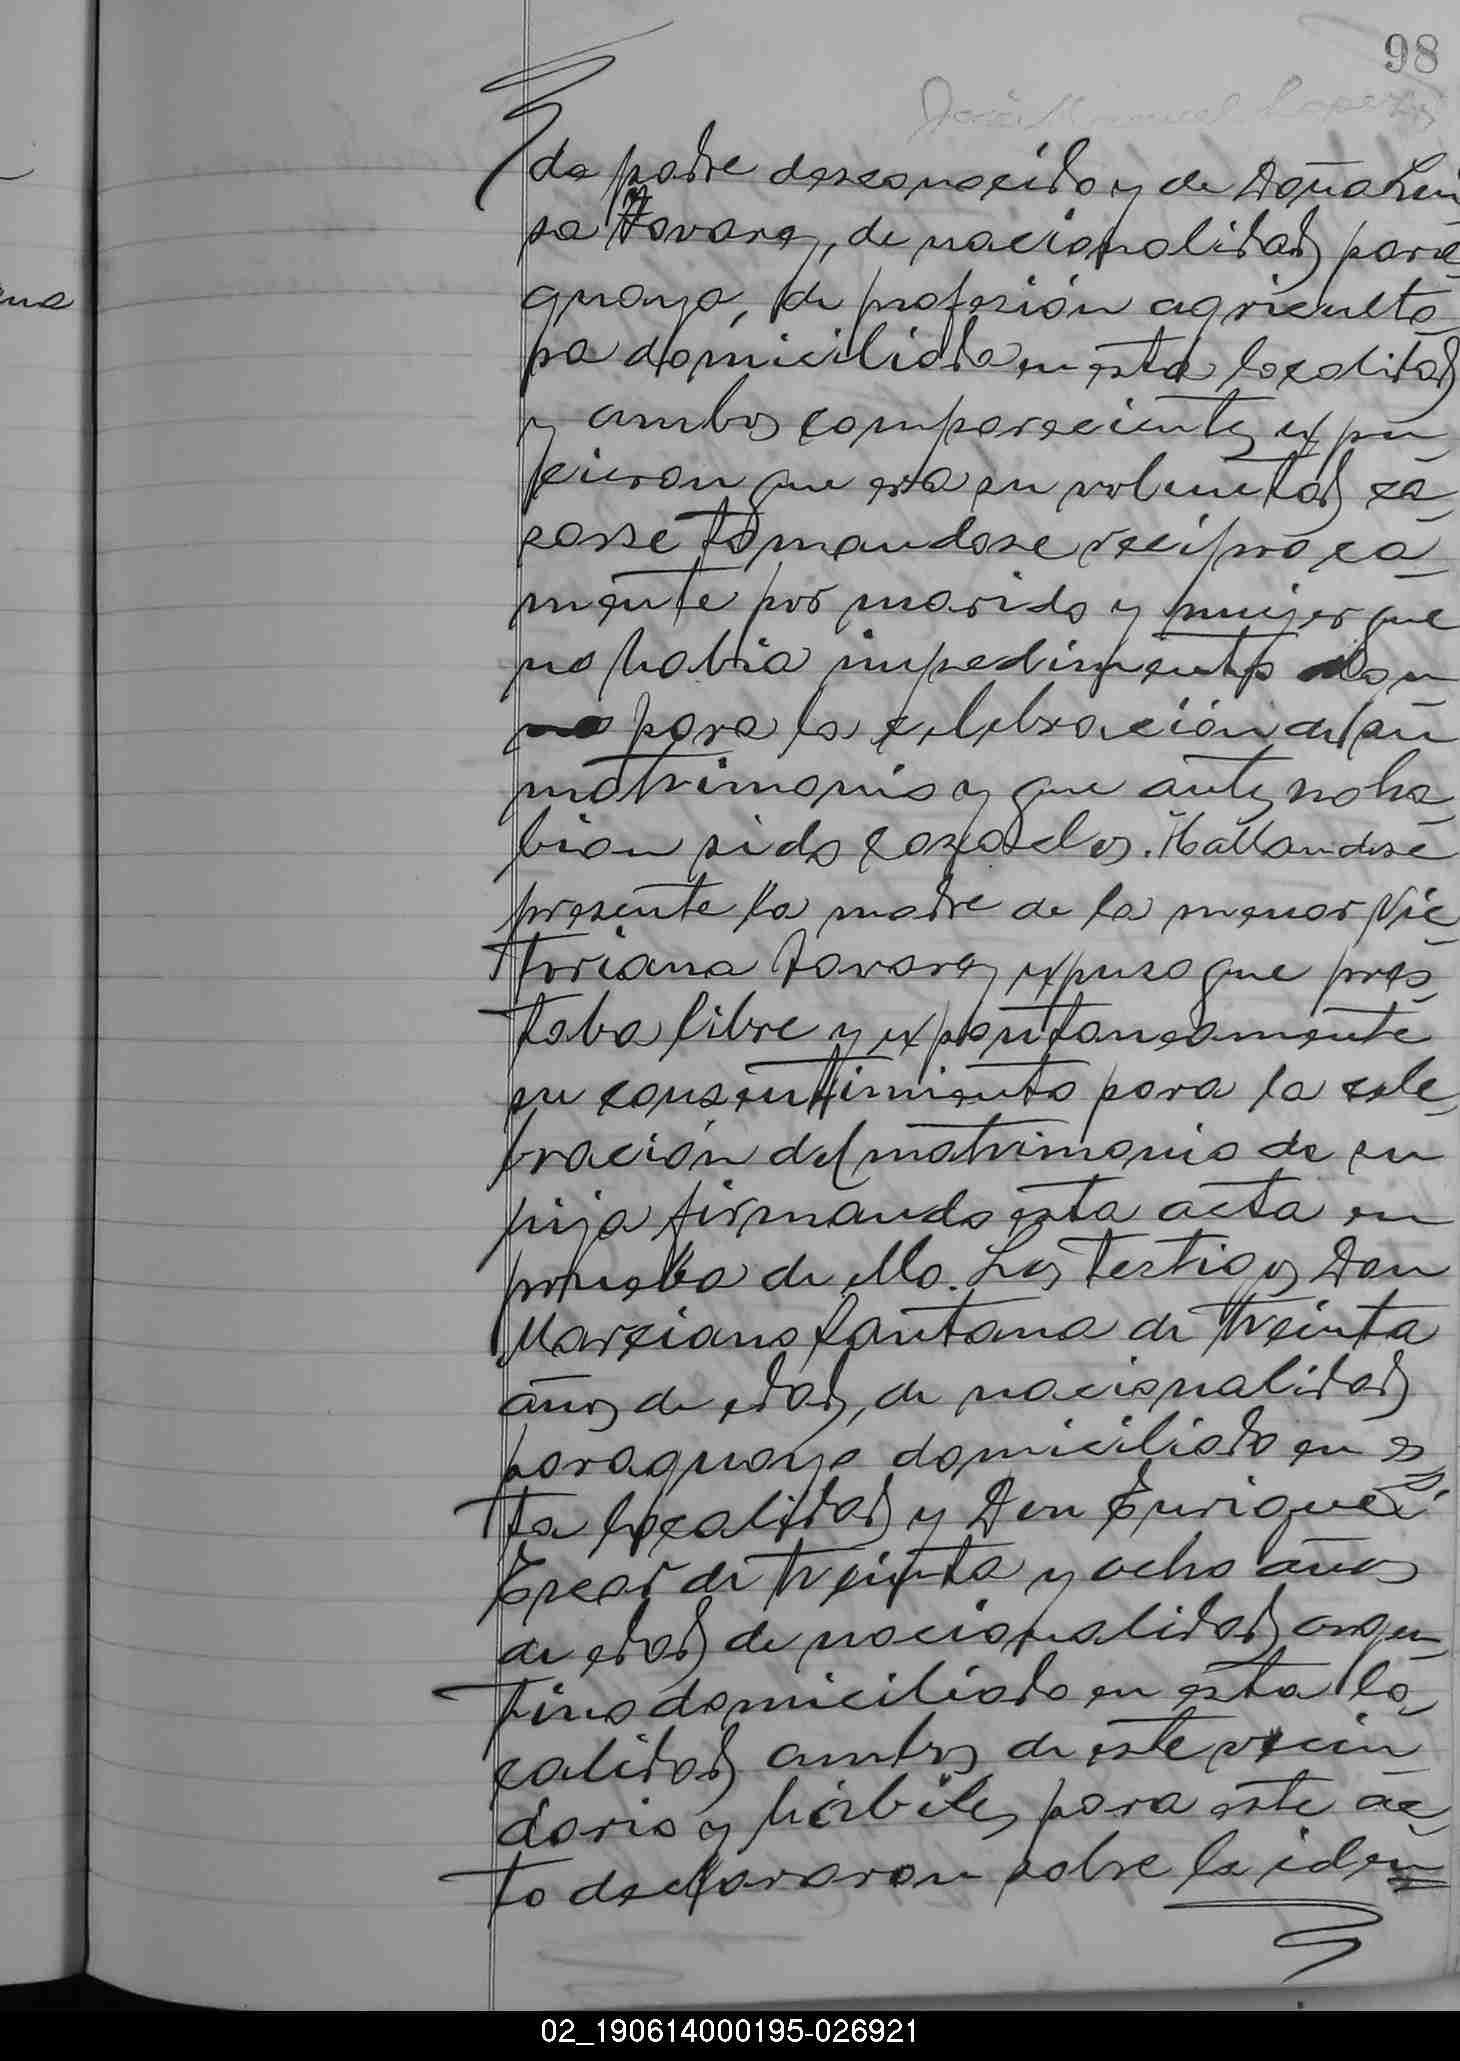 98
José Manuel Lopez
de padre desconocido y de Doña Lui
sa Tavarez, de nacionalidad para
guaya, de profesión agriculto
ra domiciliada en esta localidad
y ambos comparecientes expu
sieron que era su voluntad ca
sarse tomandose reciproca
mente por marido y mujer que
no habia impedimento algu
no para la celebración del su
matrimonio y que antes no ha
bian sido casados. Hallandose
presente la madre de la menor Vic
toriana Tavarez expuso que pres
taba libre y expontaneamente
su consentimiento para la cele
bración del matrimonio de su
hija firmando esta acta en
prueba de ello. Los testigos Don
Marciano Santana de treinta
años de edad, de nacionalidad
paraguaya domiciliado en es
ta localidad y Don Enrique
de treinta y ocho años
de edad de nacionalidad argen
tino domiciliado en esta lo
calidad ambos de este vecin
dario y hábiles para este ac
to declararon sobre la iden
02_190614000195-026921